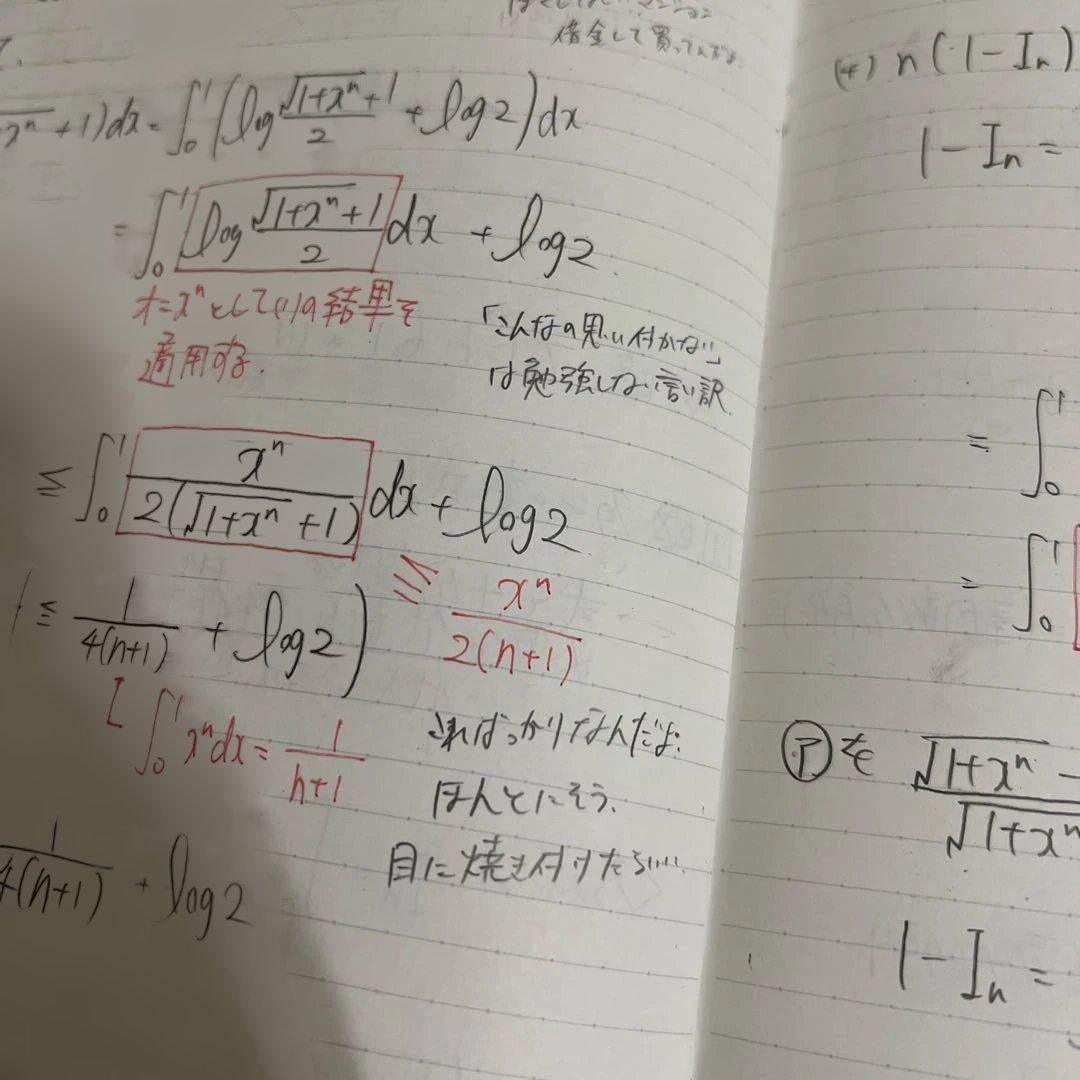 借金して買ってんだよ
x^n + 1)dx = ∫₀¹(log (√(1+x^n)+1)/2 + log2)dx
= ∫₀¹ log (√(1+x^n)+1)/2 dx + log2.
t=x^nとして(1)の結果を
適用する.
「こんなの思い付かない」
は勉強しない言い訳.
≦ ∫₀¹ x^n/(2(√(1+x^n)+1)) dx + log2
≦ x^n/(2(n+1))
≦ 1/(4(n+1)) + log2)
[∫₀¹ x^n dx = 1/(n+1)
こればっかりなんだよ.
ほんとにそう.
目に焼き付けたらいい
1/(4(n+1)) + log2
(4) n(1-Iₙ)
1-Iₙ =
= ∫₀¹
= ∫₀¹
㋐を √(1+x^n) -
√(1+x^n
1-Iₙ =